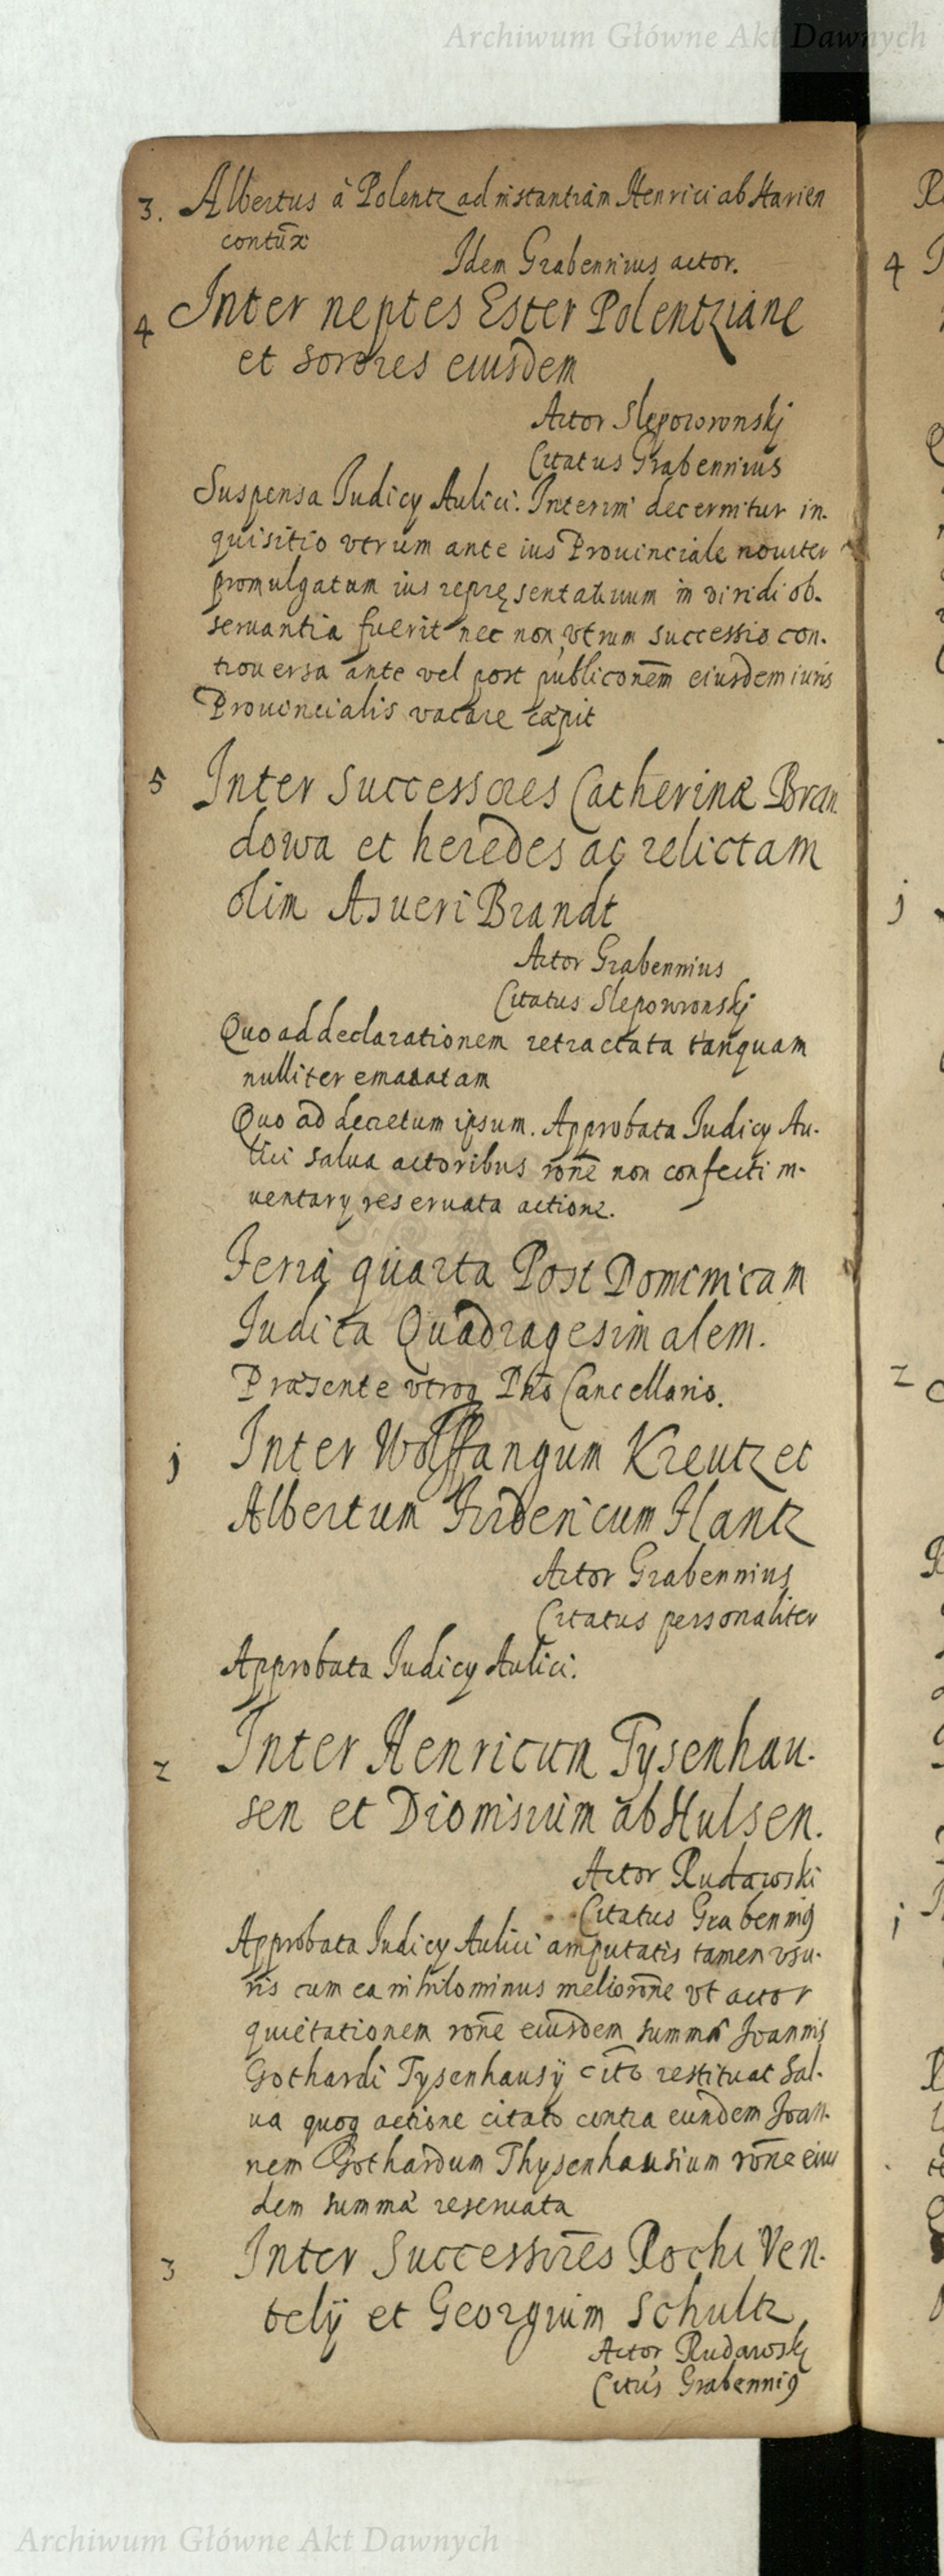 Archiwum Główne Akt Dawnych
3. Albertus à Polentz ad instantiam Henrici ab Harien
contūx
Idem Grabennius actor.
4 Inter neptes Ester Polentziane
et sorores eiusdem
Actor Slepowronskj
Citatus Grabennius
Suspensa Judicy Aulici. Interim decernitur in-
quisitio vtrum ante ius Prouinciale nouiter
promulgatum ius repręsentatiuum in viridi ob-
seruantia fuerit nec non vtrum successio con-
trouersa ante vel post publiconēm eiusdem iuris
Prouincialis vacare cæpit
5 Inter Successores Catherinæ Bran
dowa et heredes ac relictam
olim Asueri Brandt
Actor Grabennius
Citatus Slepowronskj
Quo ad declarationem retractata tanquam
nulliter emanatam
Quo ad decretum ipsum. Approbata Judicy Au-
lici salua actoribus rōne non confecti in-
uentary reseruata actione.
Feria quarta Post Dominicam
Judica Quadragesimalem.
Præsente vtroq Dno Cancellario.
j Inter Wolffangum Kreutz et
Albertum Fridericum Hantz
Actor Grabennius
Citatus personaliter
Approbata Judicy Aulici.
2 Inter Henricum Tysenhau-
sen et Dionisium ab Hulsen.
Actor Rudawski
Citatus Grabennig
Approbata Judicy Aulici amputatis tamen vsu-
ris cum ea nihilominus meliorōne vt actor
quietationem rōne eiusdem summæ Joannis
Gothardi Tysenhausÿ cito restituat sal-
ua quoq actione citato contra eundem Joan-
nem Gothardum Thysenhausium rōne eius
dem summæ reseruata
3 Inter Successorēs Rochi Ven-
telÿ et Georgium Schultz
Actor Rudawskj
Citūs Grabennig
Archiwum Główne Akt Dawnych